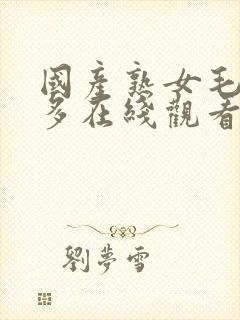 國產熟女毛
多在綫觀看
劉夢雪